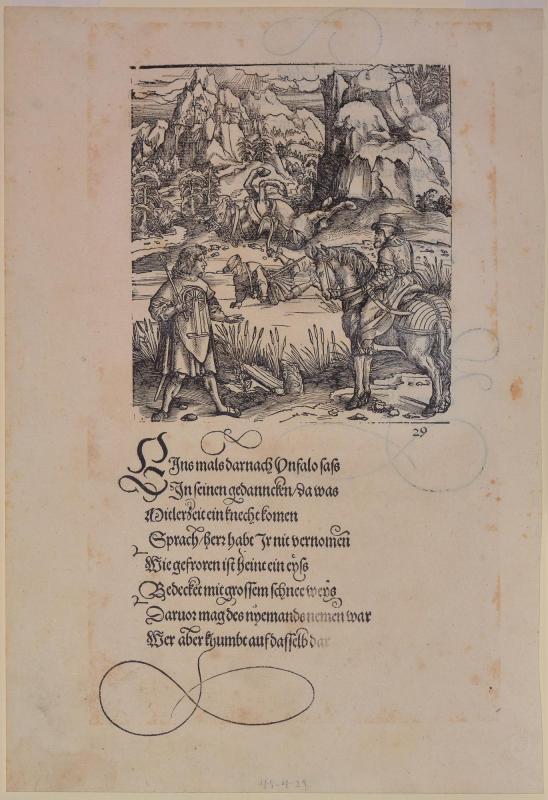 29
EIns mals darnach Vnfalo saß
In seinen gedanncken / da was
Mitlerzeit ein knecht komen
Sprach / herz habt Ir nit vernomen
Wie gefroren ist heint ein eyß
Bedecket mit grossem schnee weys
Daruor mag des nyemands nemen war
Wer aber khumbt auf dasselb dar
45-4-29